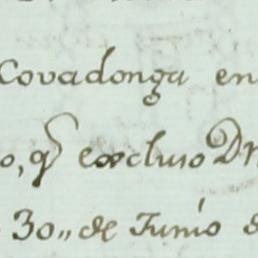 Covadonga en
o, qᵉ excluso Dn
30,, de Junio